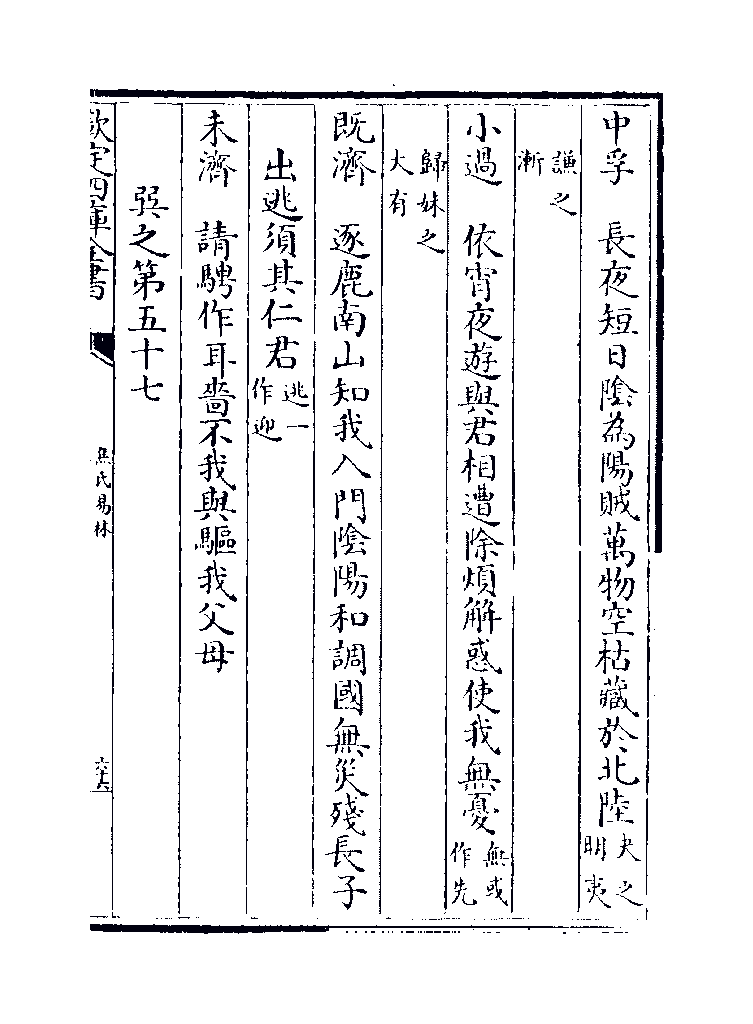 中孚　長夜短日陰為陽賊萬物空枯藏於北陸夬之明夷
謙之漸
小過　依宵夜遊與君相遭除煩解惑使我無憂無或作先
歸妹之大有
既濟　逐鹿南山知我入門陰陽和調國無災殘長子
出逃須其仁君逃一作迎
未濟　請騁作耳嗇不我與驅我父母
巽之第五十七
欽定四庫全書
焦氏易林